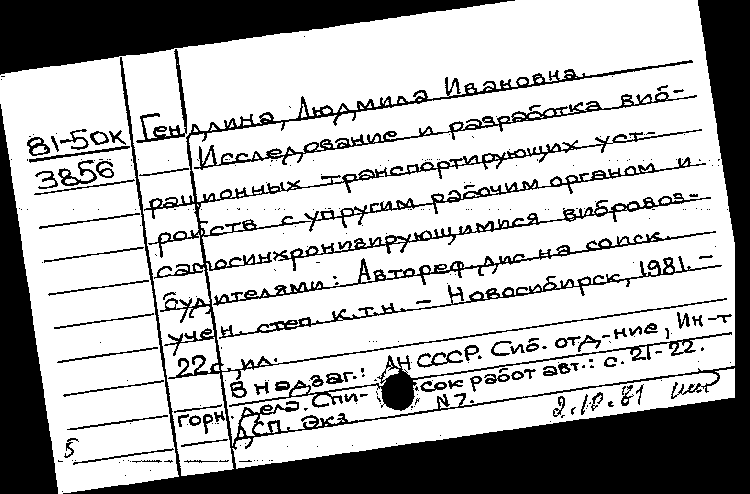 81-50к
3856
Гендлина, Людмила Ивановна.
Исследование и разработка виб-
рационных транспортирующих уст-
ройств с упругим рабочим органом и
самосинхронизирующимися вибровоз-
будителями: Автореф. дис на соиск.
учен. степ. к.т.н. – Новосибирск, 1981. –
22с. ил.
В надзаг.: АН СССР. Сиб. отд-ние, Ин-т
горн. дела. Спи- сок работ авт.: с. 21-22.
ДСП. Экз N 7.
2.10.81
Б